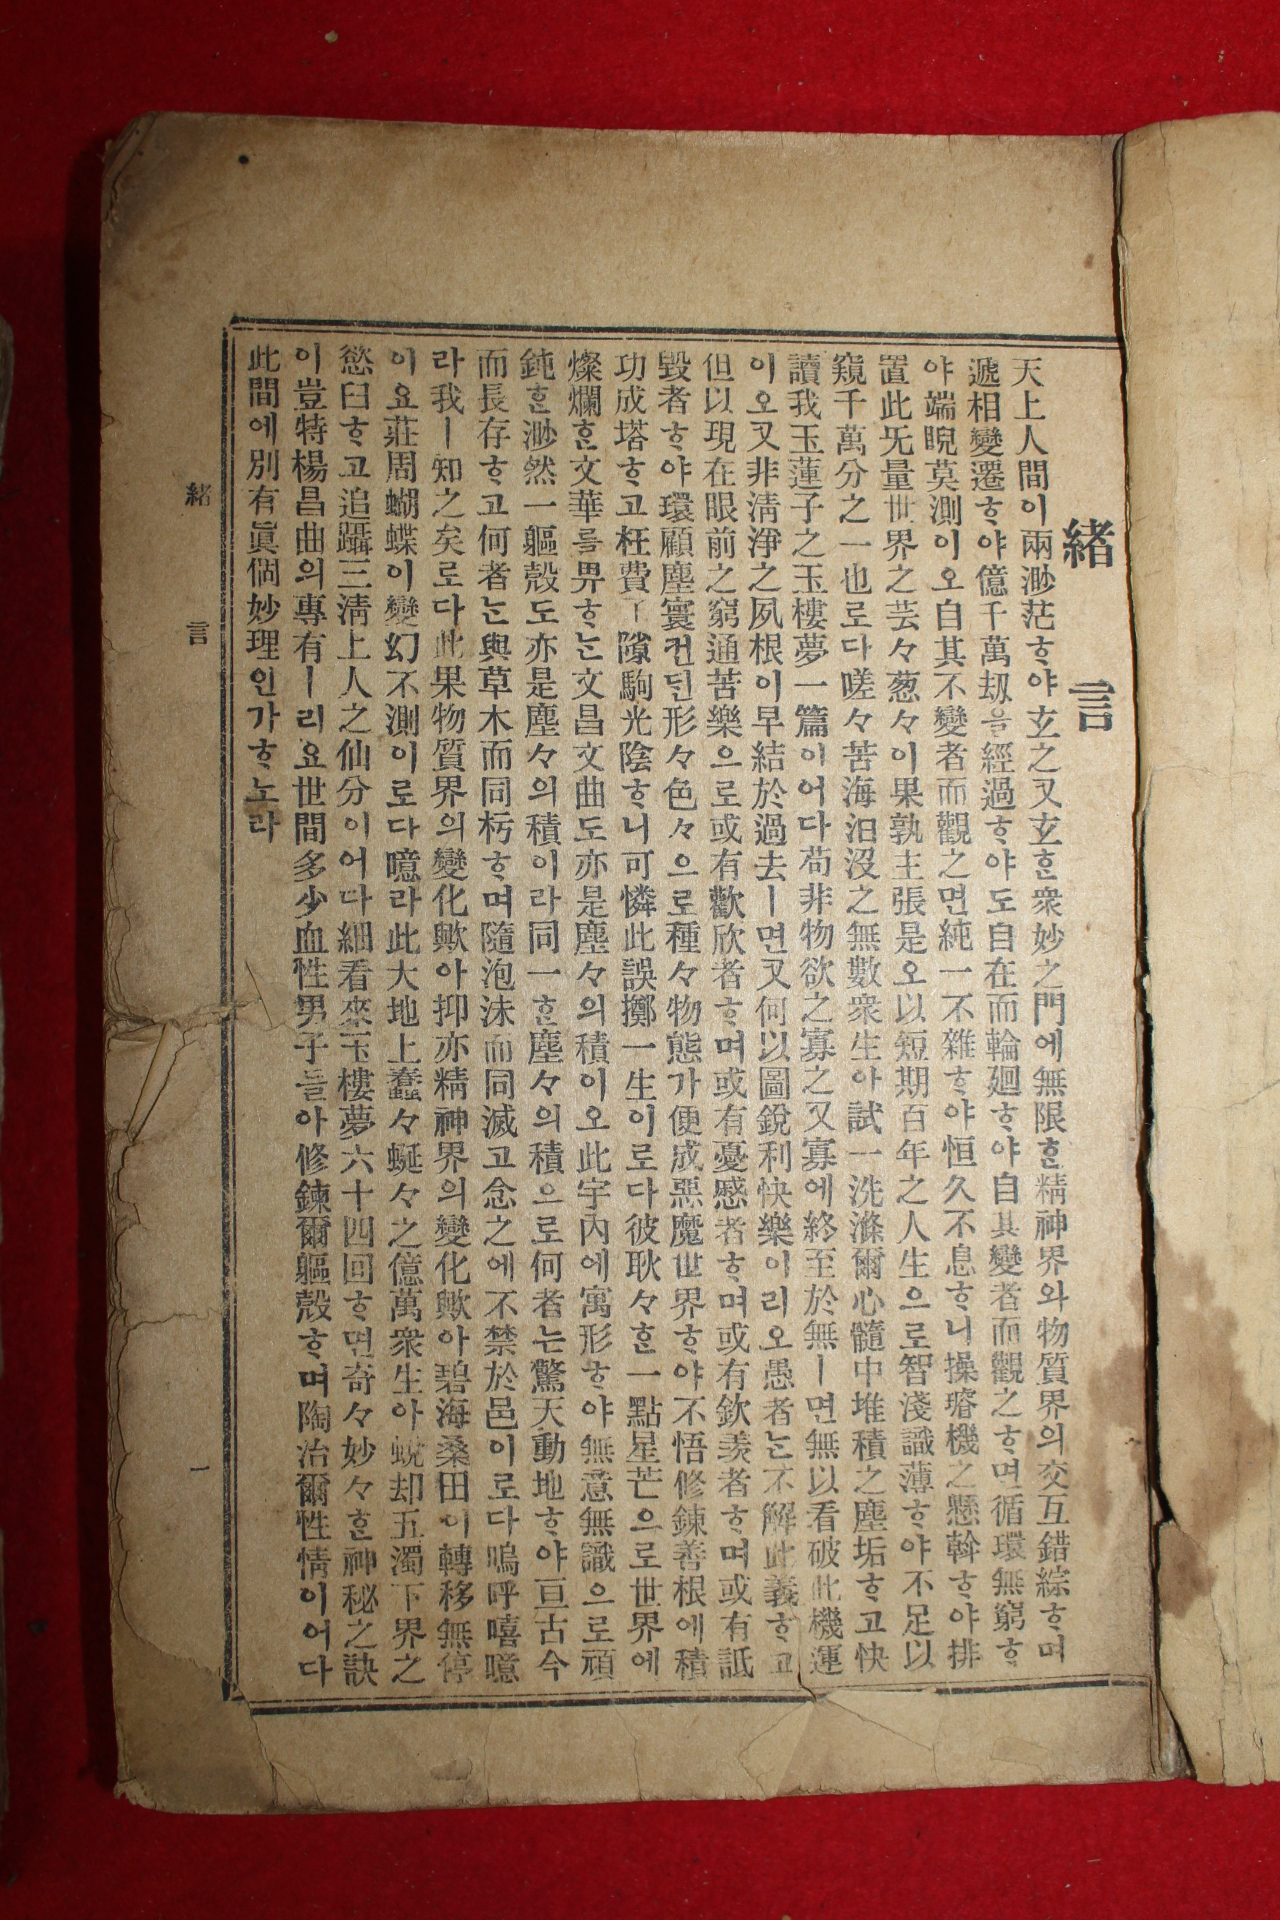 緖言
天上人間이兩渺茫ᄒᆞ야玄之又玄ᄒᆞᆫ衆妙之門에無限ᄒᆞᆫ精神界와物質界의交互錯綜ᄒᆞ며
遞相變遷ᄒᆞ야億千萬刼을經過ᄒᆞ야도自在而輪廻ᄒᆞ야自其變者而觀之ᄒᆞ면循環無窮ᄒᆞ
야端睨莫測이오自其不變者而觀之면純一不雜ᄒᆞ야恒久不息ᄒᆞ니操璿機之懸斡ᄒᆞ야排
置此旡量世界之芸々葱々이果孰主張是오以短期百年之人生으로智淺識薄ᄒᆞ야不足以
窺千萬分之一也로다嗟々苦海汨沒之無數衆生아試一洗滌爾心髓中堆積之塵垢ᄒᆞ고快
讀我玉蓮子之玉樓夢一篇이어다苟非物欲之寡之又寡에終至於無ㅣ면無以看破此機運
이오又非淸淨之夙根이早結於過去ㅣ면又何以圖銳利快樂이리오愚者ᄂᆞᆫ不解此義ᄒᆞ고
但以現在眼前之窮通苦樂으로或有歡欣者ᄒᆞ며或有憂慼者ᄒᆞ며或有欽羨者ᄒᆞ며或有詆
毁者ᄒᆞ야環顧塵寰컨딘形々色々으로種々物態가便成惡魔世界ᄒᆞ야不悟修鍊善根에積
功成塔ᄒᆞ고枉費了隙駒光陰ᄒᆞ니可憐此誤擲一生이로다彼耿々ᄒᆞᆫ一點星芒으로世界에
燦爛ᄒᆞᆫ文華를畀ᄒᆞᄂᆞᆫ文昌文曲도亦是塵々의積이오此宇內에寓形ᄒᆞ야無意無識으로頑
鈍ᄒᆞᆫ渺然一軀殼도亦是塵々의積이라同一ᄒᆞᆫ塵々의積으로何者는驚天動地ᄒᆞ야亘古今
而長存ᄒᆞ고何者ᄂᆞᆫ與草木而同朽ᄒᆞ며隨泡沫而同滅고念之에不禁於邑이로다嗚呼嘻噫
라我ㅣ知之矣로다此果物質界의變化歟아抑亦精神界의變化歟아碧海桑田이轉移無停
이요莊周蝴蝶이變幻不測이로다噫라此大地上蠢々蜒々之億萬衆生아蛻却五濁下界之
慾臼ᄒᆞ고追躡三淸上人之仙分이어다細看來玉樓夢六十四回ᄒᆞ면奇々妙々ᄒᆞᆫ神秘之訣
이豈特楊昌曲의專有ㅣ리요世間多少血性男子들아修鍊爾軀殼ᄒᆞ며陶冶爾性情이어다
此間에別有眞個妙理인가ᄒᆞ노라
緖 言 一